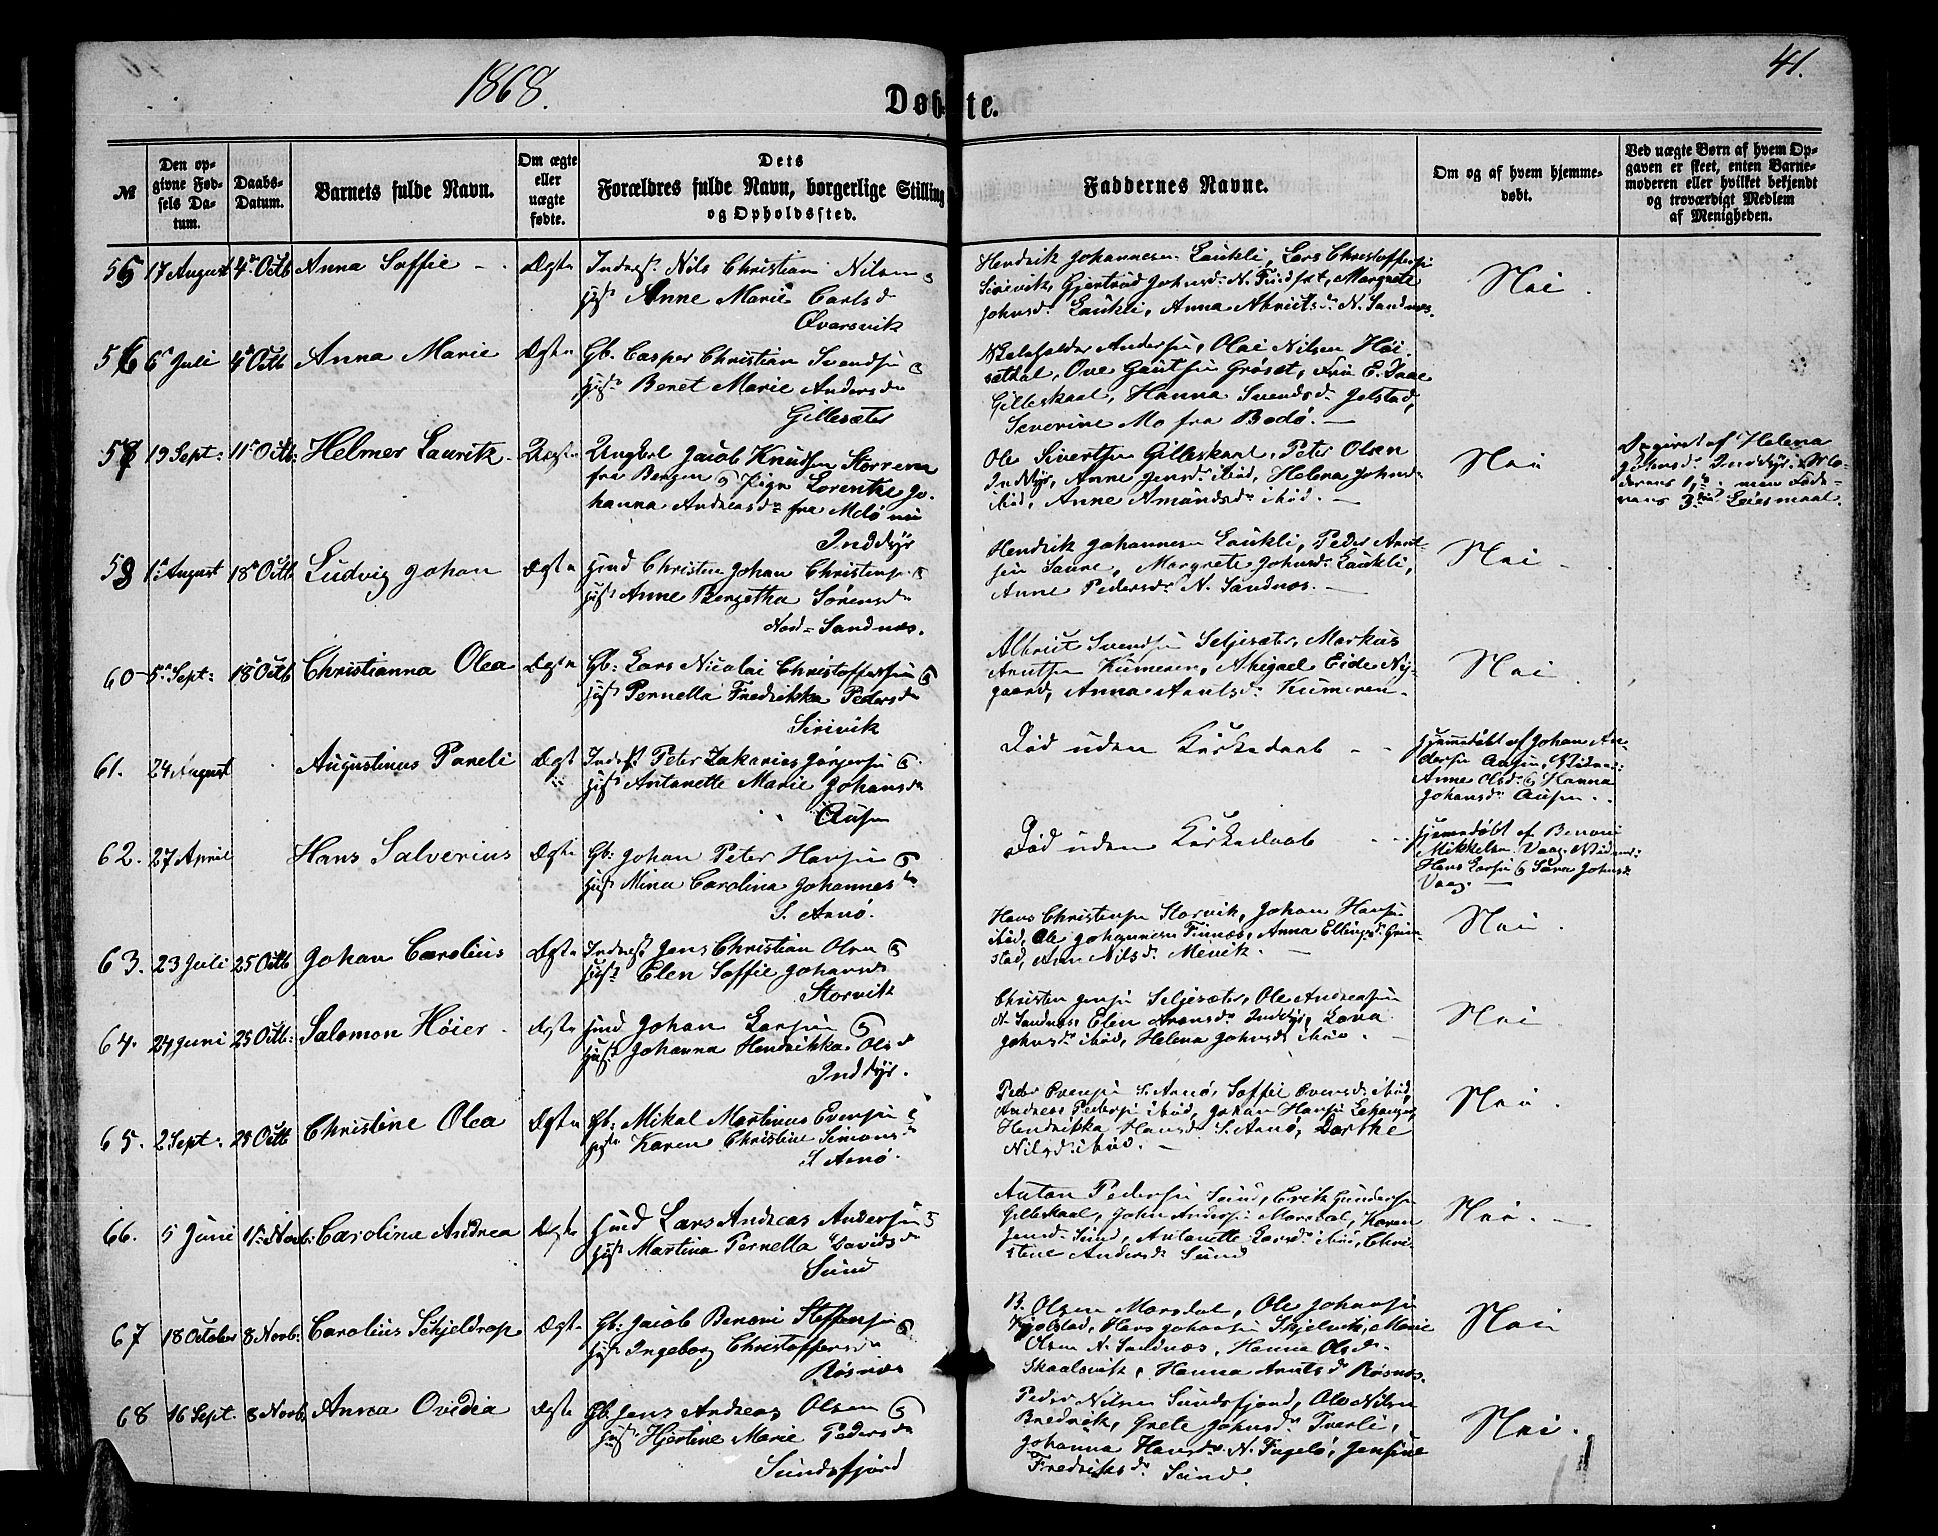 1868.
Døbte.
41.
№
Den opgivne Fødsels Datum.
Daabs-Datum.
Barnets fulde Navn.
Om ægte eller uægte fødte.
Dets Forældres fulde Navn, borgerlige Stilling og Opholdssted.
Faddernes Navne.
Om og af hvem hjemmedøbt.
Ved uægte Børn af hvem Opgaven er skeet, enten Barnemoderen eller hvilket bekjendt og troværdigt Medlem af Menigheden.
55 17 August 4de Octb Anna Soffie Ægte
Inderst Nils Christian Nilsen
Anne Marie Carlsd
Qvarsvik
Hendrik Johannesen Laukli, Lars Christoffersen
Sirivik, Gjertrud Johnsd: N. Fuglset, Margrete
Johnsd: Laukli, Anna Albriktsd: N. Sandnæs.
Nei
56 6 Juli 4 Octb Anna Marie Ægte
Gb. Casper Christian Svendsen
Benet Marie Andersdr
Gillesæter
Andersen, Olai Nilsen Høi-
sethal, Ove Gautsen Grøset, Fru E. Daae
Gilleskaal, Hanna Svendsd. Jolstad,
Severine Mo fra Bodø.
57 19 Sept: 11 Octb: Helmer Lauritz Uægte
Ungkarl Jacob Knudsen Storrem
fra Bergen Pige Lorentze Jo-
hanna Andreasdr fra Melø nu
Inddyr
Ole Sivertsen Gilleskaal, Peter Olsen
Inddyr, Anne Jensd: ibid, Helena Johnsd:
ibid, Anne Amundsdr ibid.
Nei
Angivet af Helena
Johnsd: Inddyr. Mo-
derens 1ste men Fade-
rens 3die Leiermaal.
58 1 August 18 Octb Ludvig Johan Ægte
Huusd Christen Johan Christensen
Anne Bergetha Sørensdr
Nord-Sandnæs.
Hendrik Johannesen Laukli, Peder Arnt-
sen Saure, Margrete Johnsdr Laukli,
Anne Pedersdr N. Sandnæs.
Nei
60 5 Sept: 18 Octb Christianna Olea Ægte
Gb: Lars Nicolai Christoffersen
Pernella Fredrikka Pedersdr
Sirivik
Albrict Svendsen Seljesæter, Markus
Arntsen Kumeren, Abegael Eide Ny-
gaard, Anna Arntsd: Kumeren.
Nei
61. 24 August Augustinus Pareli Ægte
Inderst Peter Zakarias Jørgensen
Antonette Marie Johansdr
Ausen
Død uden Kirkedaab
Hjemmedøbt af Johan An-
dersen Ausen, Vidner:
Anne Olsd: Hanna
Johansdr Ausen.
62. 27 April Hans Salverius Ægte
Gb: Johan Peter Hansen
Mina Carolina Johannesdr
S. Arnø.
Død uden Kirkedaab
Hjemmedøbt af Benoni
Mikkelsen Vaag. Vidner:
Hans Larsen Sara Johnsd:
Vaag.
63. 23 Juli 25 Octb Johan Carolius Ægte
Inderst Jens Christian Olsen
Elen Soffie Johansd
Storvik
Hans Christensen Storvik, Johan Hansen
ibid, Ole Johannesen Finnæs, Anna Ellingsd: Grim-
stad, Ane Nilsd: Mevik.
Nei.
64. 24 Juni 25 Octb: Salomon Høier Ægte
Huusd Johan Larsen
Johanna Hendrikka Olsd
Inddyr.
Christen Jensen Seljesæter, Ole Andreasen
N. Sandnæs, Elen Aronsdr Inddyr, Lava
Johnsdr ibid, Helena Johnsdr ibid.
Nei
65. 2 Sept: 25 Octb Christine Olea Ægte
Gb: Mikal Martinus Evensen
Karen Christine Simonsdr
S. Arnø.
Peder Evensen S. Arnø, Soffie Evensd: ibid,
Andreas Pedersen ibid, Johan Hansen
Hendrikka Hansd: S. Arnø, Dorthe
Nilsd: ibid.
Nei.
66. 5 Juni 1ste Novb: Carolina Andrea Ægte
Huusd Lars Andreas Andersen
Martina Pernella Davidsdr
Sund
Anton Pedersen Sund, Erik Gundersen
Gilleskaal, John Andersen Morsdal, Karen
Jensd: Sund, Antonette Larsdr ibid, Chri-
stene Andersdr Sund
Nei.
67 18 October 8 Novb: Carolius Schjeldrop Ægte
Gb: Jacob Benoni Steffensen
Ingeborg Christoffersdr
Røsnæs
B. Olsen Morsdal, Ole Johansen
Kjolstad, Hans Johansen Skjelvik, Marie
Olsen N. Sandnæs, Hanne Olsdr
Skaalsvik, Hanna Arntsdr Røsnæs.
Nei
68 16 Sept. 8 Novb. Anna Ovidia Ægte
Gb. Jens Andreas Olsen
Hjertine Marie Pedersdr
Sundsfjord
Peder Nilsen Sundsfjord, Ole Nilsen
Bredvik, Grete Johnsdr Tverli,
Johanna Hansdr N. Fugelø, Jensine
Fredriksdr Sund.
Nei.